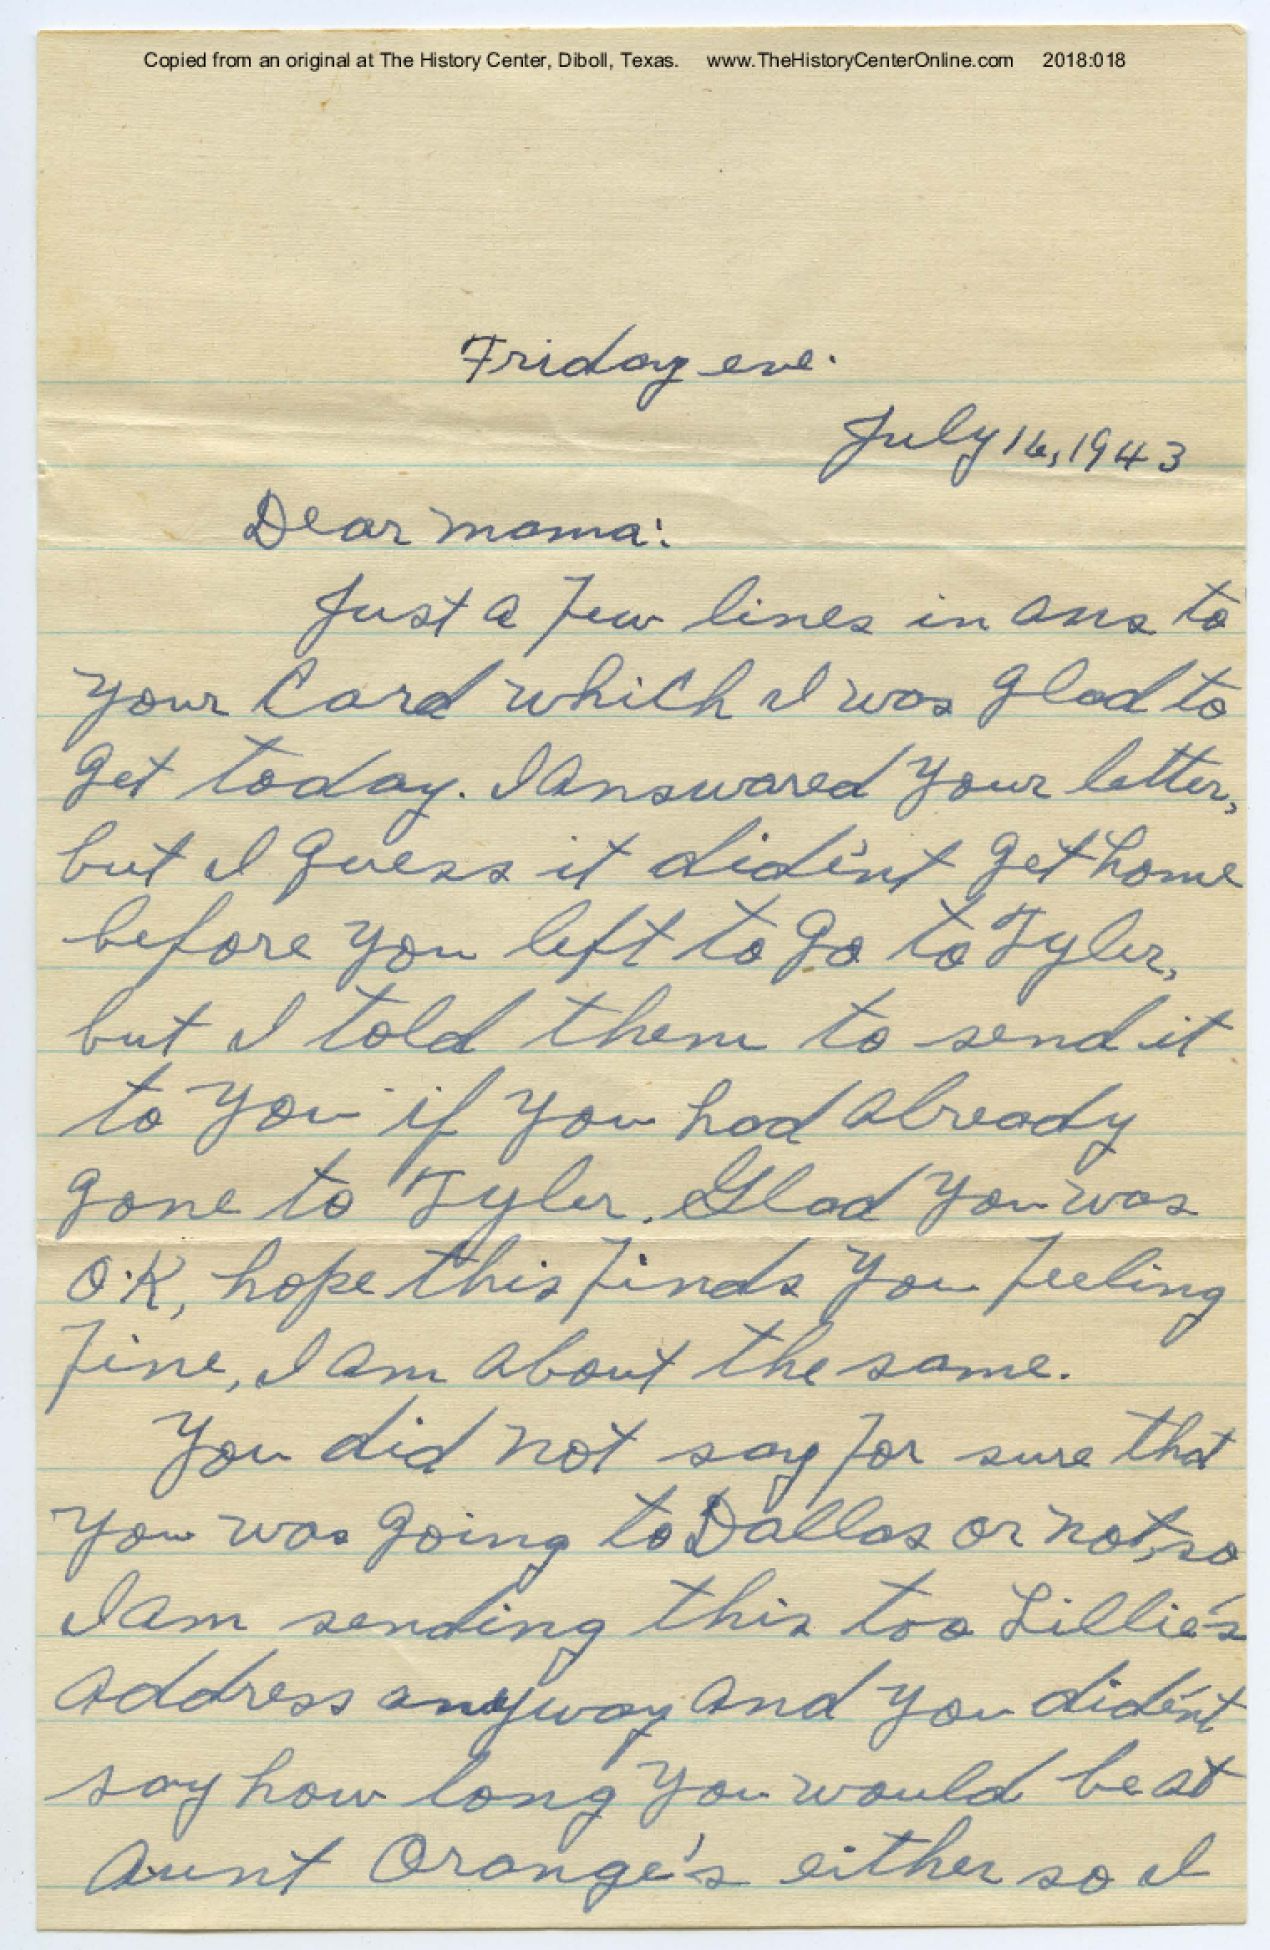 Copied from an original at The History Center, Diboll, Texas. www.TheHistoryCenterOnline.com 2018:018
Friday eve.
July 16, 1943
Dear mama:
Just a few lines in ans to
your Card which I was glad to
get today. I answared your letter,
but I guess it did'ent get home
before you left to go to Tyler,
but I told them to send it
to you if you had already
gone to Tyler. Glad you was
O.K, hope this finds you feeling
fine, I am about the same.
You did not say for sure that
you was going to Dallas or not, so
I am sending this too Lillie's
address anyway and you did'ent
say how long you would be at
Aunt Orange's either so I